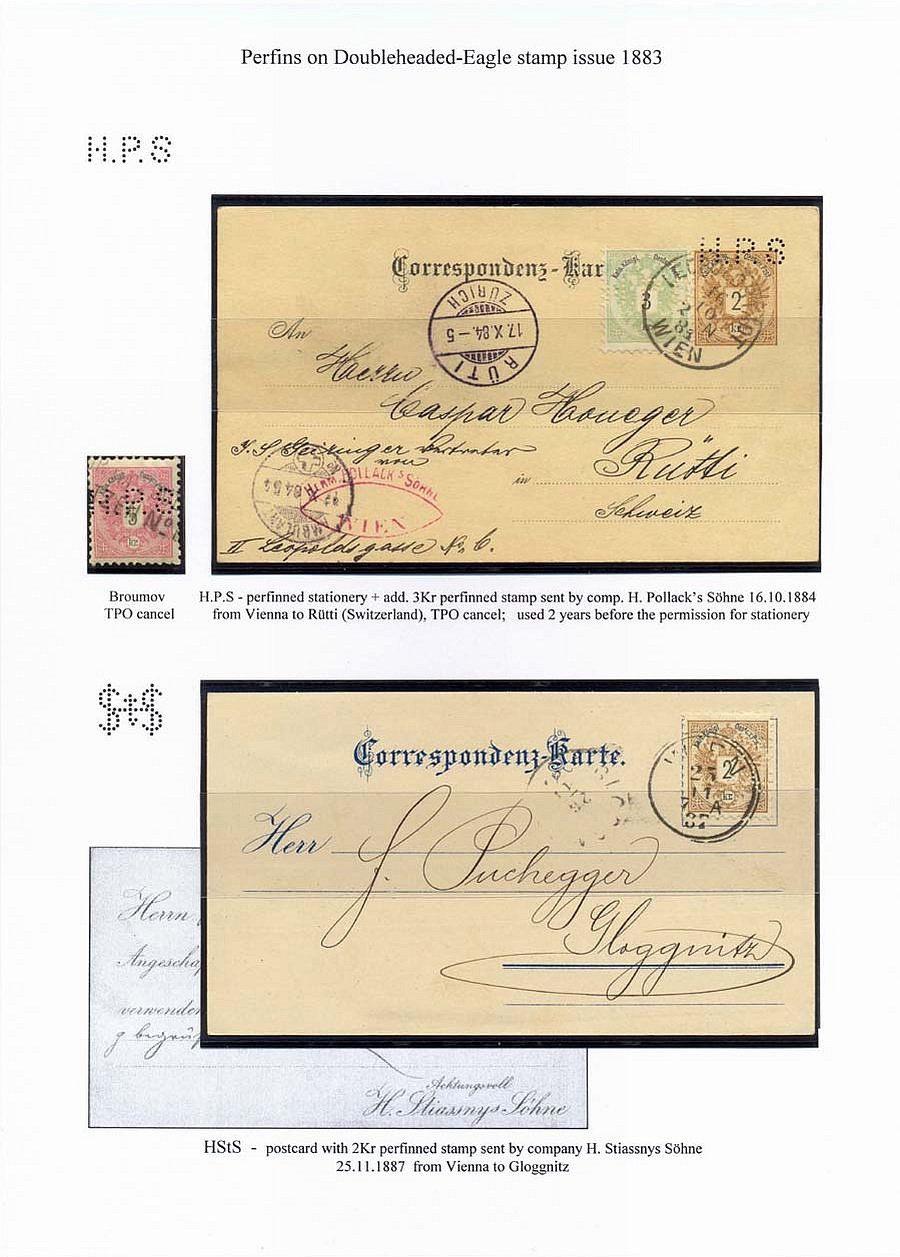 Perfins on Doubleheaded-Eagle stamp issue 1883
H.P.S
Correspondenz-Kar
H.P.S
3
2
kr
WIEN
ZÜRICH
17.X.84.-5
RÜTI
An
Herrn
Caspar Honeger
J. S. Geiringer Vertreter
von
in Rütti
HERM. POLLACK'S SÖHNE
WIEN
Schweiz
II Leopoldsgasse No. 6.
H.P.S
5
kr
Broumov
TPO cancel
H.P.S - perfinned stationery + add. 3Kr perfinned stamp sent by comp. H. Pollack's Söhne 16.10.1884
from Vienna to Rütti (Switzerland), TPO cancel; used 2 years before the permission for stationery
Correspondenz-Karte.
2
kr
25
11
Herr J. Puchegger
Gloggnitz
Herrn
Angescha
verwenden
g begrüß
Achtungsvoll
H. Stiassnys Söhne
HStS - postcard with 2Kr perfinned stamp sent by company H. Stiassnys Söhne
25.11.1887 from Vienna to Gloggnitz